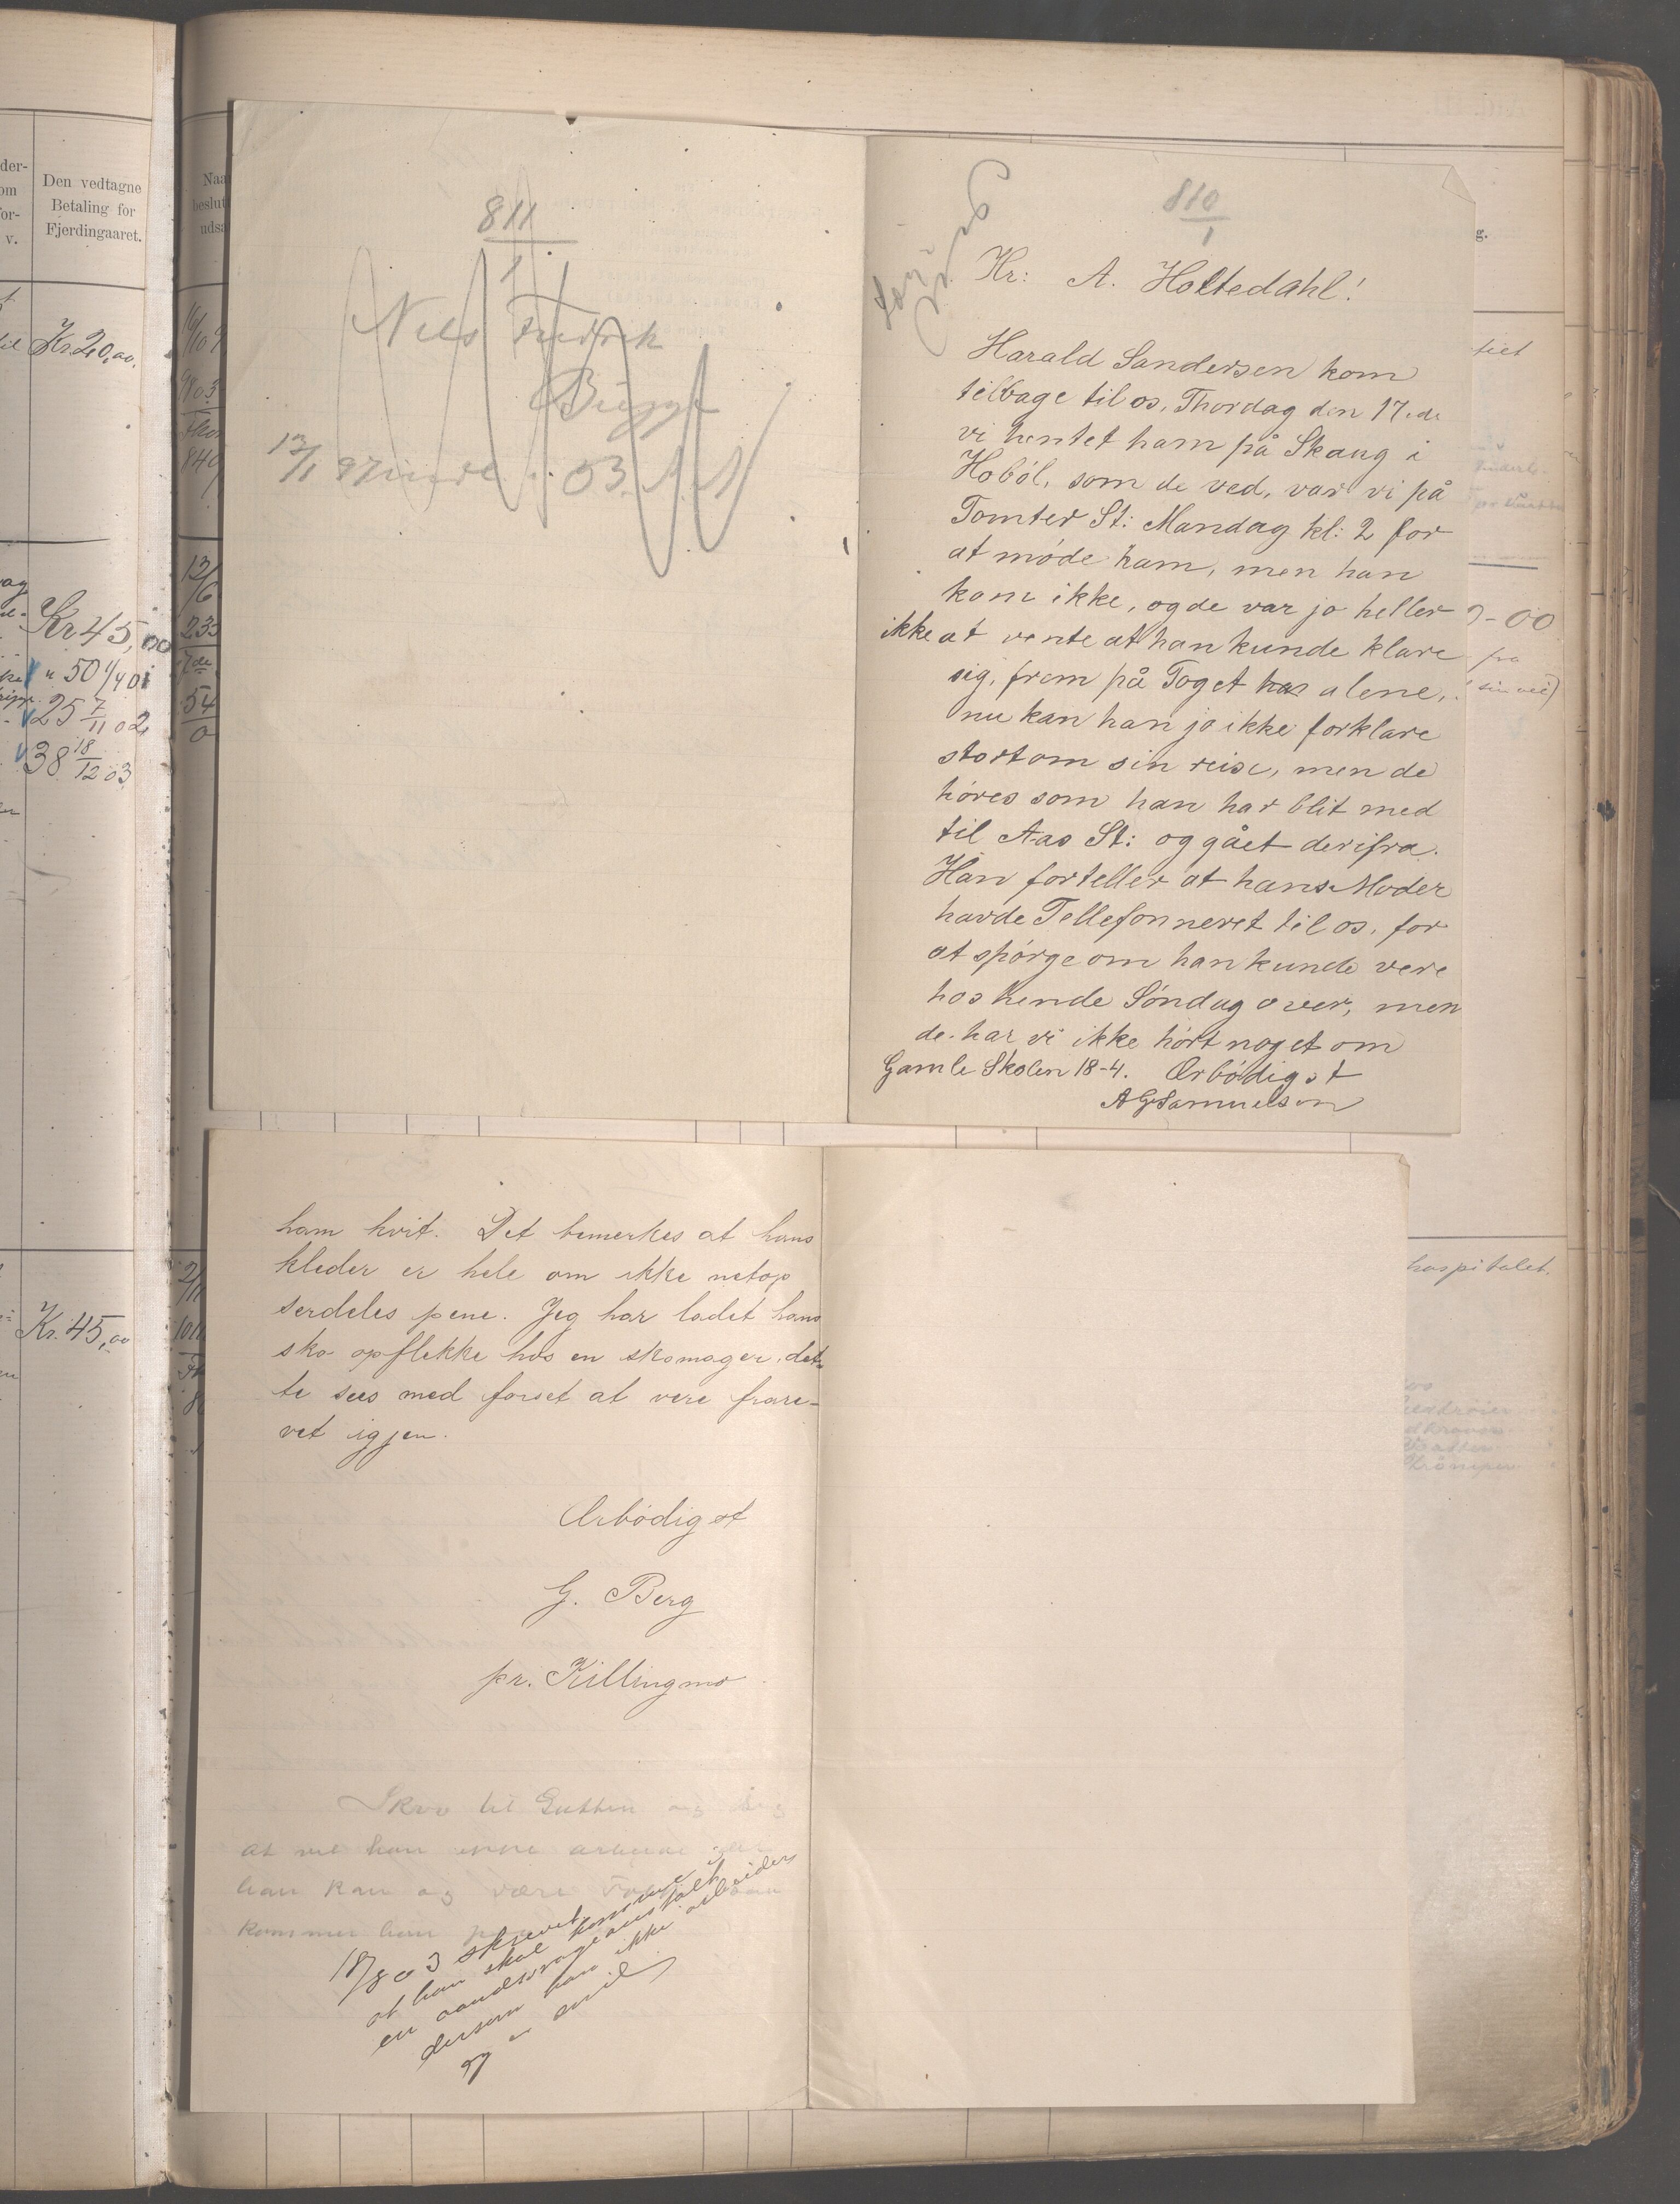 der-
om
for-
v.
Den vedtagne
Betaling for
Fjerdingaaret.
Kr. 20,00.
Kr 45,00
" 50 1/4 01
25 7/11 02
38 18/12 03
Kr. 45,00
Naa
beslut
udsa
811
1
Nils Fredrik
Brygge
13/1 03.
810
1
Hr: A. Holtedahl!
Harald Sandersen kom
tilbage til os, Thordag den 17.de
vi hentet ham på Skaug i
Hoból, som de ved, var vi på
Tomter St: Mandag kl: 2 for
at móde ham, men han
kom ikke, og de var jo heller
ikke at vente at han kunde klare
sig, frem på Toget alene,
nu kan han jo ikke forklare
stort om sin reise, men de
hóres som han har blit med
til Aas St: og gået derifra.
Han forteller at hans Moder
havde Tellefonneret til os, for
at spórge om han kunde vere
hos hende Sóndag over, men
de har vi ikke hórt noget om
Gamle Skolen 18-4. Ærbódigst
A G Samuelsen
g.
-00
hospitalet.
ham hvit. Det bemerkes at hans
kleder er hele om ikke netop
serdeles pene. Jeg har ladet hans
sko opflekke hos en skomager, det-
te sees med forset at vere frare-
vet igjen.
Ærbódigst
G. Berg
pr. Killingmo
Skriv til Gutten og
at vil han
han kan og være
kommer han
18/8 03 skrevet
at han skal komme i
en aandssvageanstalt
dersom han ikke arbeider
og er snil